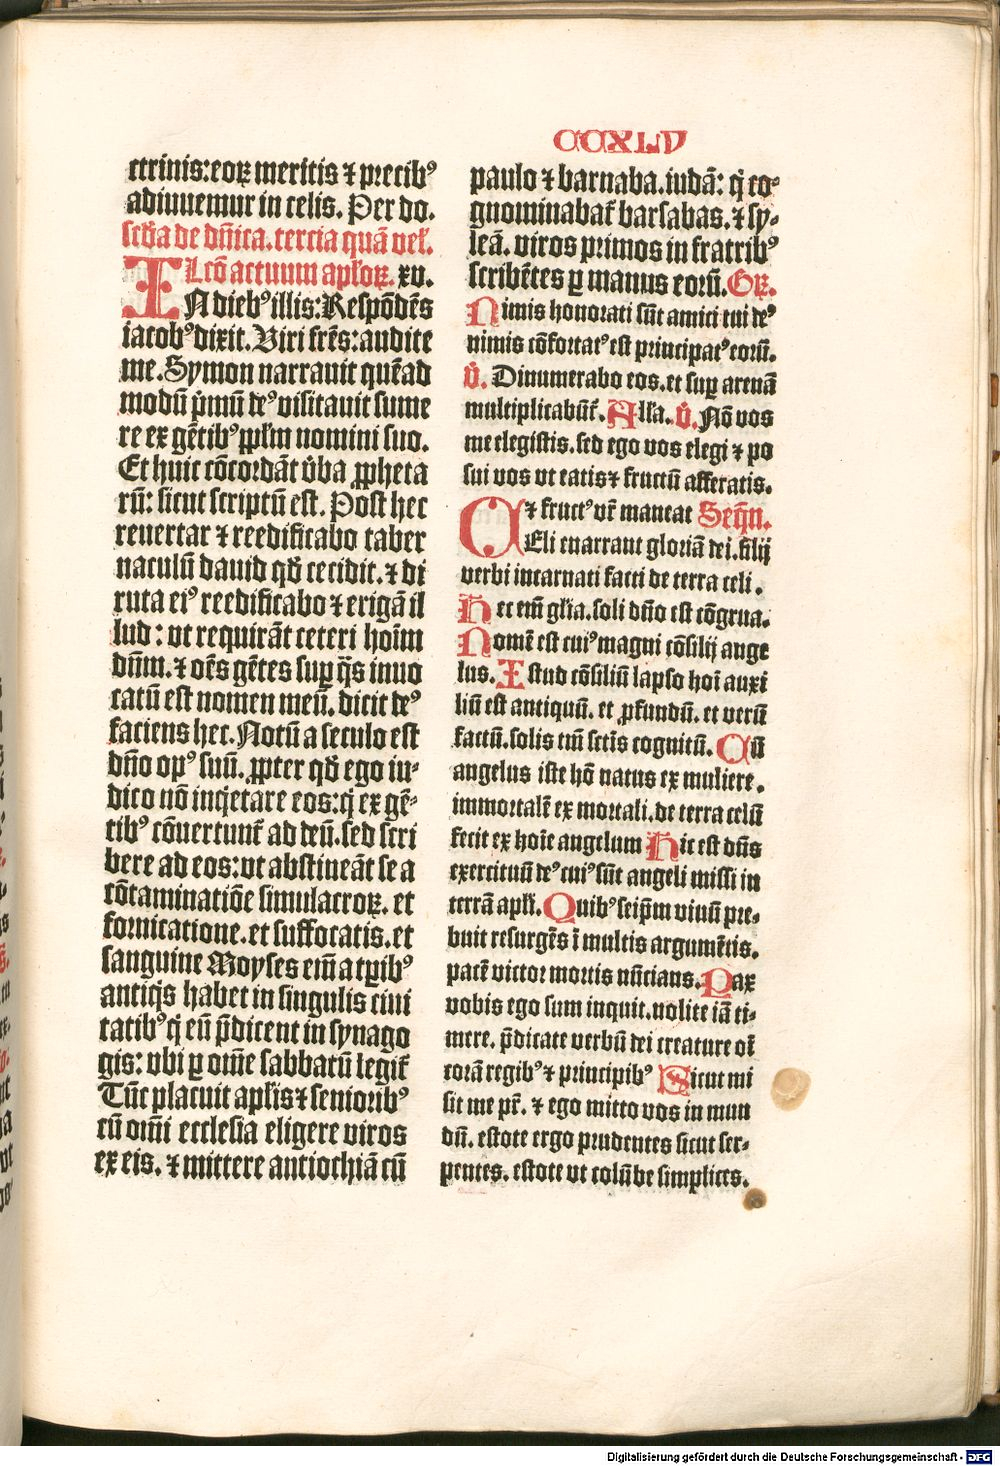 CCXLV
ctrinis:eoꝝ meritis ⁊ precibꝰ
adiuuemur in celis. Per do.
scďa de dn̄ica. tercia quā vel̕.
Lcō actuum apl̕oꝝ. xv.
IN diebꝰ illis: Respōdēs
iacobꝰ dixit. Viri fr̄es: audite
me. Symon narrauit quēad
modū p̄mū deꝰ visitauit sume
re ex gētibꝰ ppl̕m nomini suo.
Et huic cōcordāt v̄ba ꝓpheta
rū: sicut scriptū est. Post hec
reuertar ⁊ reedificabo taber
naculū dauid qď cecidit. ⁊ di
ruta eiꝰ reedificabo ⁊ erigā il
lud: vt requirāt ceteri hoīm
dn̄m. ⁊ oēs gētes suꝑ q̄s inuo
catū est nomen meū. dicit deꝰ
faciens hec. Notū a seculo est
dn̄o opꝰ suū. ꝓpter qď ego iu-
dico nō inq̇etare eos: q̇ ex gē-
tibꝰ cōuertunt̄ ad deū. sed scri
bere ad eos: vt abstineāt se a
cōtaminatiōe simulacroꝝ. et
fornicatione. et suffocatis. et
sanguine Moyses em̄ a tꝑibꝰ
antiq̇s habet in singulis ciui
tatibꝰ q̇ eū p̄dicent in synago
gis: vbi ꝑ om̄e sabbatū legit̄
Tūc placuit apl̕is ⁊ senioribꝰ
cū om̄i ecclesia eligere viros
ex eis. ⁊ mittere antiochiā cū
paulo ⁊ barnaba. iudā: q̇ co-
gnominabat̄ barsabas. ⁊ sy-
leā. viros primos in fratribꝰ
scribētes ꝑ manus eorū. Gꝝ.
Nimis honorati sūt amici tui deꝰ
nimis cōfortatꝰ est principatꝰ eorū.
v̄. Dinumerabo eos. et suꝑ arenā
multiplicabūt̄. All̕a. v̄. Nō vos
me elegistis. sed ego vos elegi ⁊ po
sui vos vt eatis ⁊ fructū afferatis.
⁊ fructꝰ vr̄ maneat Seq̄n.
CEli enarrant gloriā dei. filij
verbi incarnati facti de terra celi.
Hec em̄ gl̕ia. soli dn̄o est cōgrua.
Nomē est cuiꝰ magni cōsilij ange
lus. Istud cōsiliū lapso hoī auxi
liū est antiquū. et ꝓfundū. et verū
factū. solis tm̄ sctīs cognitū. Cū
angelus iste hō natus ex muliere.
immortalē ex mortali. de terra celū
fecit ex hoīe angelum Hic est dn̄s
exercituū deꝰ cuiꝰ sūt angeli missi in
terrā apl̕i. Quibꝰ seip̄m viuū pre-
buit resurgēs ī multis argumētis.
pacē victor mortis nūcians. Pax
vobis ego sum inquit. nolite iā ti-
mere. p̄dicate verbū dei creature oī
corā regibꝰ ⁊ principibꝰ Sicut mi
sit me pr̄. ⁊ ego mitto vos in mun
dū. estote ergo prudentes sicut ser-
pentes. estote vt colūbe simplices.
Digitalisierung gefördert durch die Deutsche Forschungsgemeinschaft - DFG